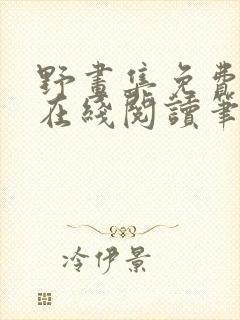 野畫集免費
在綫閱讀筆
冷伊景